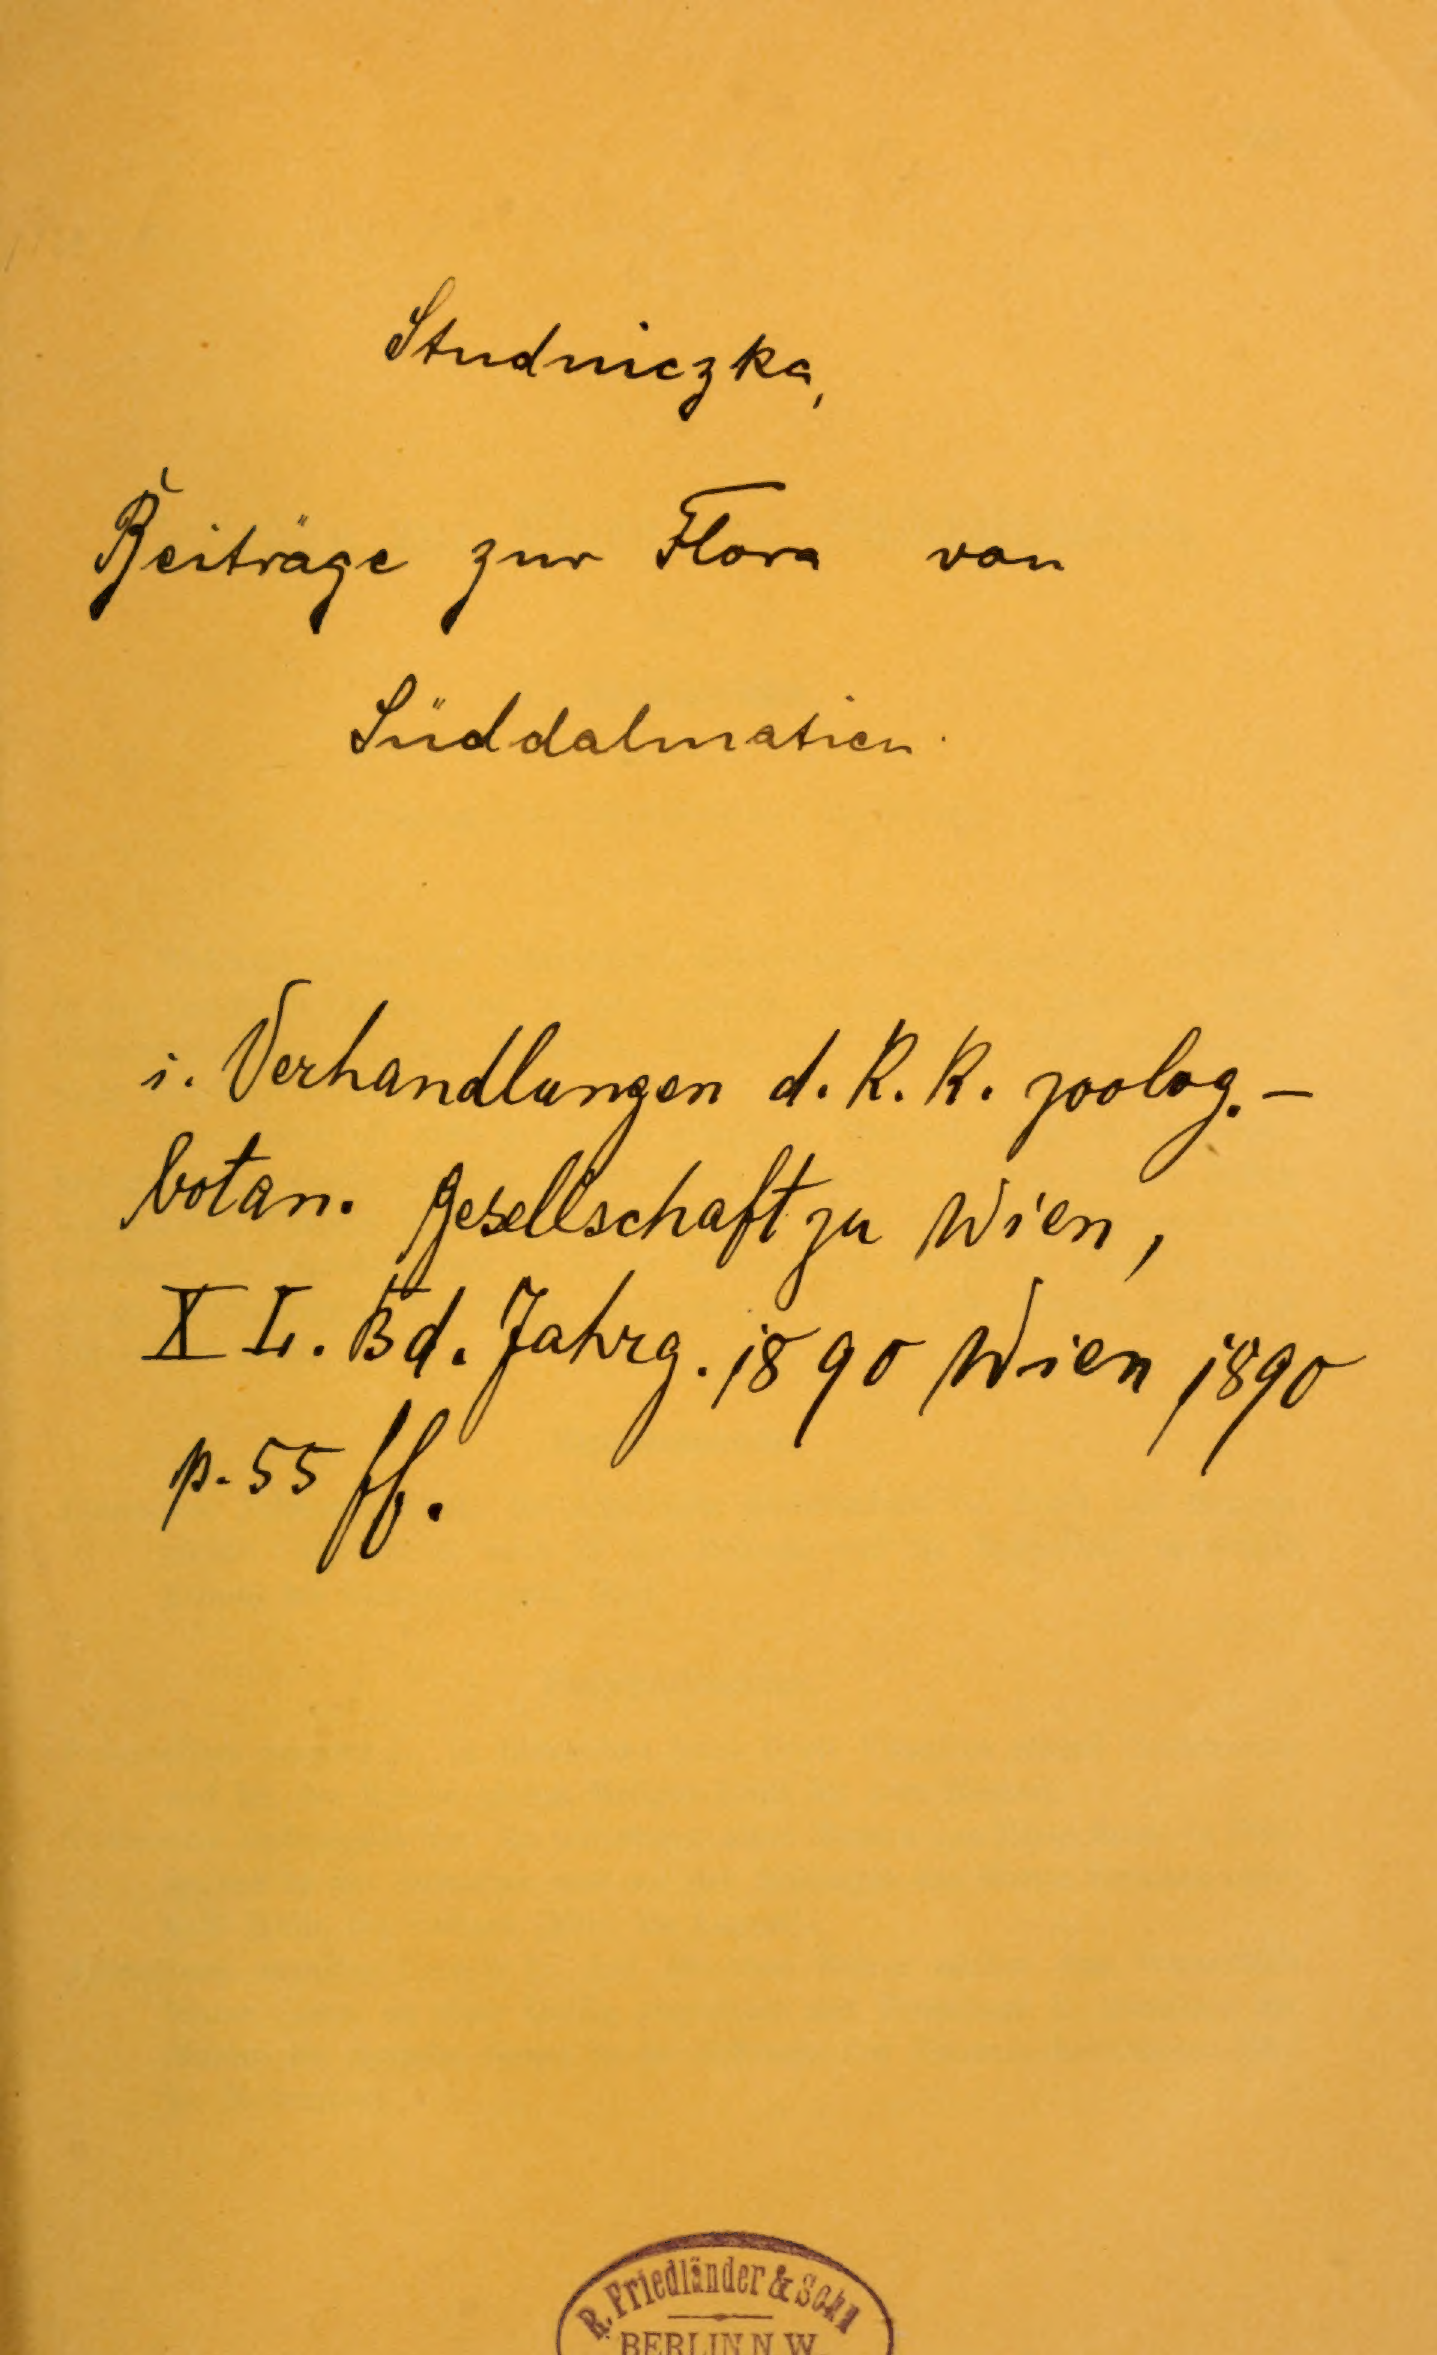 Studniczka,
Beiträge zur Flora von
Süddalmatien.
i. Verhandlungen d. K. K. zoolog. –
botan. Gesellschaft zu Wien,
XL. Bd. Jahrg. 1890 Wien 1890
p. 55 ff.
R. Friedländer & Sohn
BERLIN N.W.